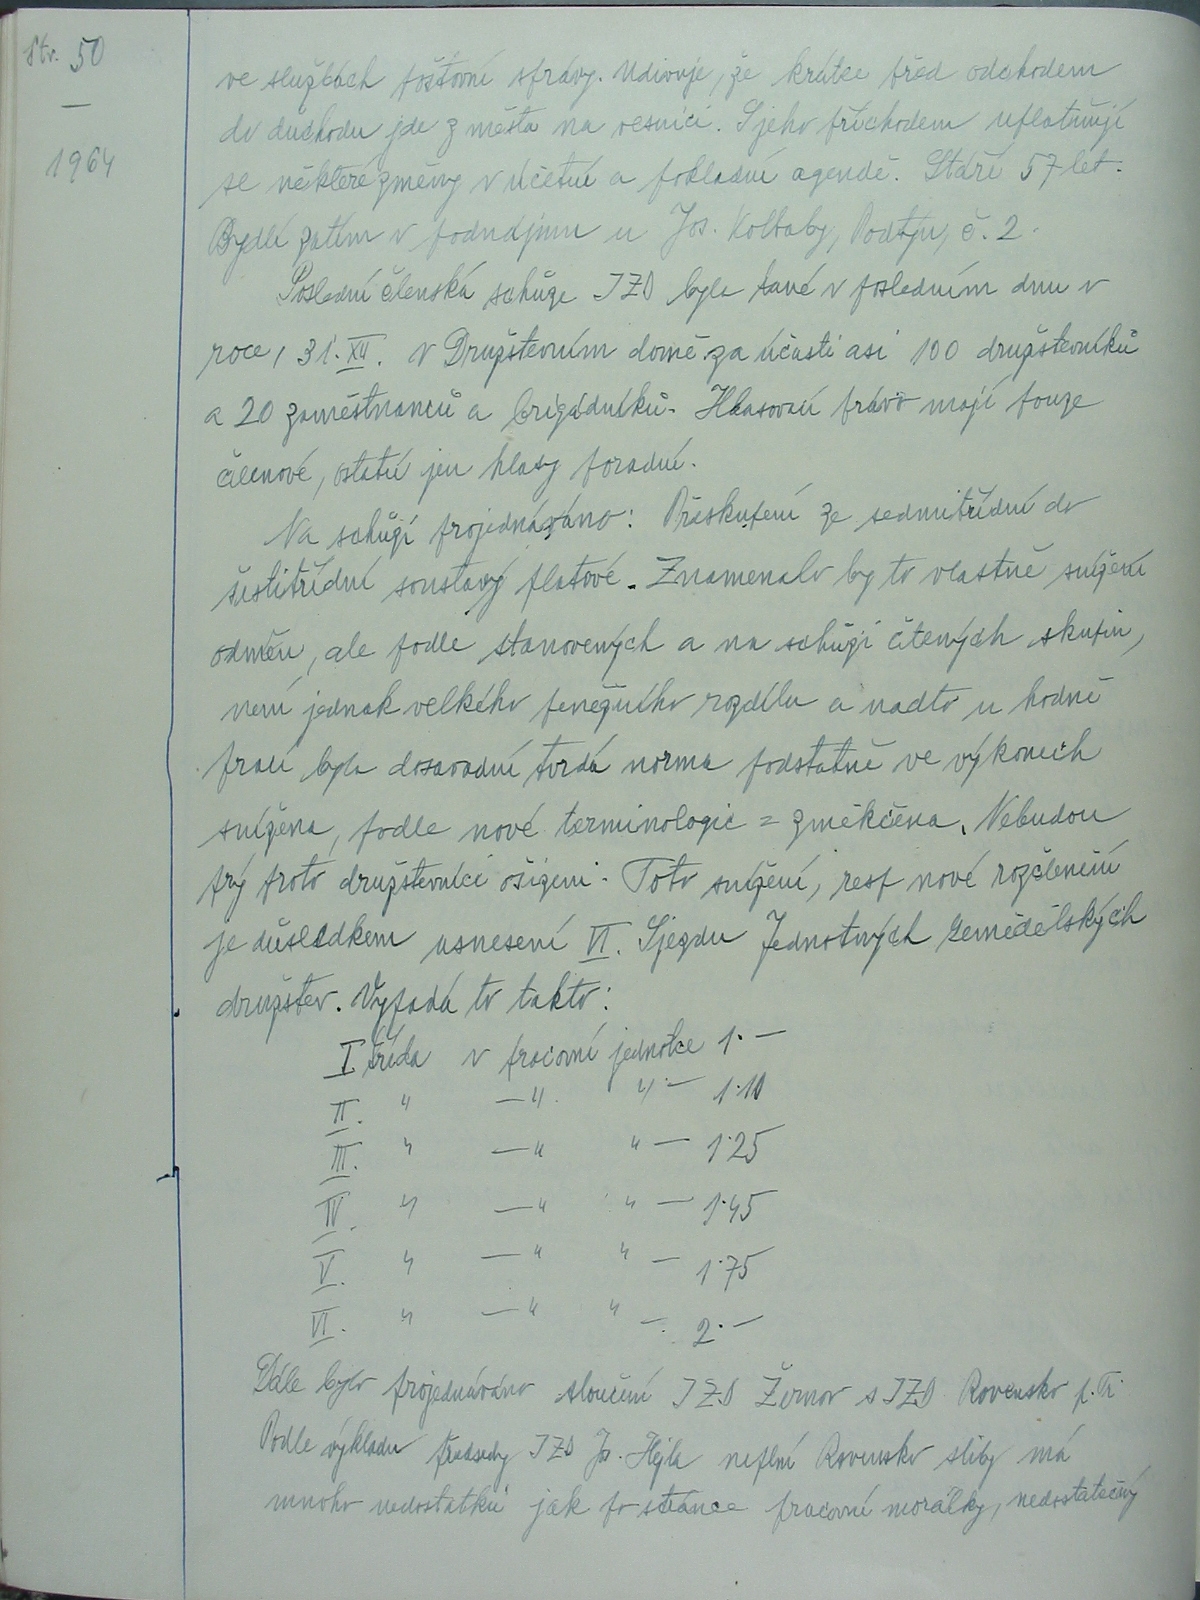 Str. 50
—
1964
ve službách poštovní správy. Udivuje, že krátce před odchodem
do důchodu jde z města na vesnici. S jeho příchodem uplatňují
se některé změny v účetní a pokladní agendě. Stáří 57 let.
Bydlí zatím v podnájmu u Jos. Koltaby, Podtýn, č. 2.
Poslední členská schůze JZD byla také v posledním dnu v
roce, 31. XII. v Družstevním domě za účasti asi 100 družstevníků
a 20 zaměstnanců a brigádníků. Hlasovací právo mají pouze
členové, ostatní jen hlasy poradní.
Na schůzi projednáváno: Přeskupení ze sedmitřídní do
šestitřídní soustavy platové. Znamenalo by to vlastně snížení
odměn, ale podle stanovených a na schůzi čtených skupin,
není jednak velkého peněžního rozdílu a nadto u hodně
prací byla dosavadní tvrdá norma podstatně ve výkonech
snížena, podle nové terminologie = změkčena. Nebudou
prý proto družstevníci ošizeni. Toto snížení, resp nové rozčlenění
je důsledkem usnesení VI. Sjezdu Jednotných zemědělských
družstev. Vypadá to takto:
I třída v pracovní jednotce 1.—
II. " —" " — 1.10
III. " —" " — 1.25
IV. " —" " — 1.45
V. " —" " — 1.75
VI. " —" " — 2.—
Dále bylo projednáváno sloučení JZD Žernov s JZD Rovensko p. Tr.
Podle výkladu předsedy JZD Jos. Hejla neplní Rovensko sliby má
mnoho nedostatků jak po stránce pracovní morálky, nedostatečný